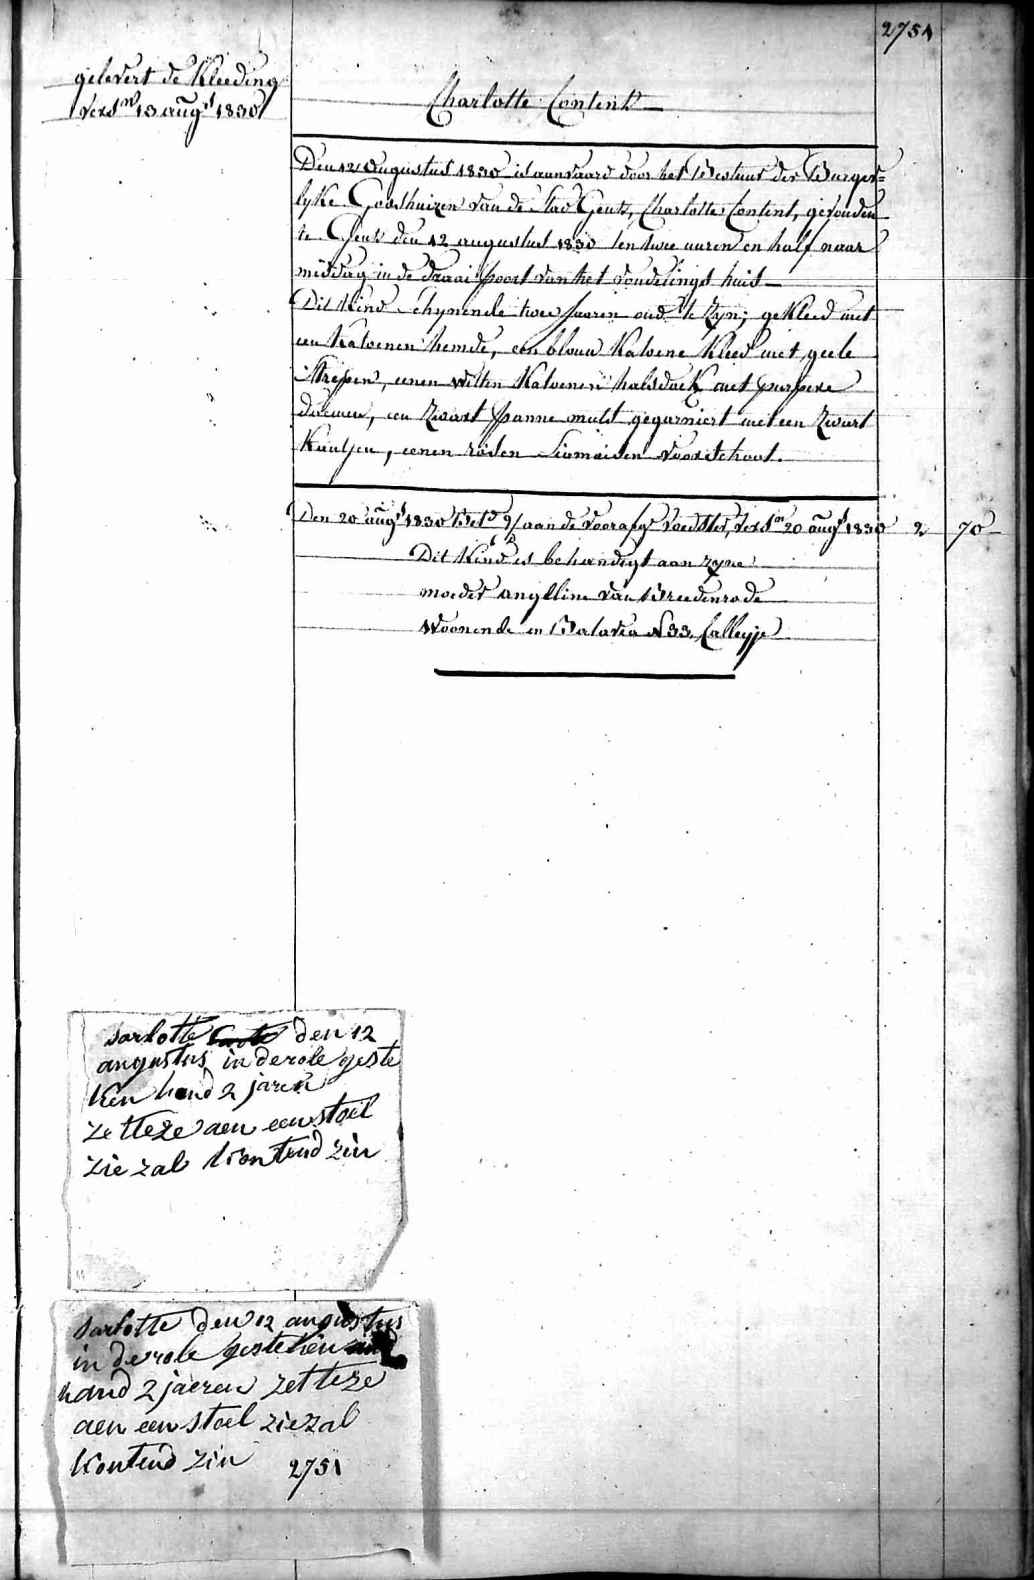 2751
gelevert de Kleeding
vers^n 13 aug^s 1830
Charlotte Content
Den 12 augustus 1830 is aanvaard door het Bestuur der Burger=
lyke Godshuizen van de Stad Gent, Charlotte Content, gevonden
te Gent den 12 augustus 1830 ten twee uuren en half naar
middag in de draaipoort van het vondelings huis
Dit Kind schynende twee Jaaren oud te Zyn; gekleed met
een Katoenen hemde, een blouw Katoene Kleed met geele
Strepen, eenen witten Katoenen halsdoek met purpere
bloemen, een Zwart panne muts gegarniert met een Zwart
Kantjen, eenen rooden Siamoisen Voorschoot.
Den 20 aug^s 1830 aan de voedster, vers^n 20 aug^s 1830 2 70
Dit Kind is behandigt aan zyne
moeder angeline van Breedenrode
Woonende in Batavia N 33 Calleyje
sarlotte den 12
augustus in de role geste
ken houd 2 jaren
zetteze aen een stoel
zie zal kontend zin
sarlotte den 12 augustus
in de role gesteken
haud 2 jaeren zetteze
aen een stoel zie zal
kontend zin 2751